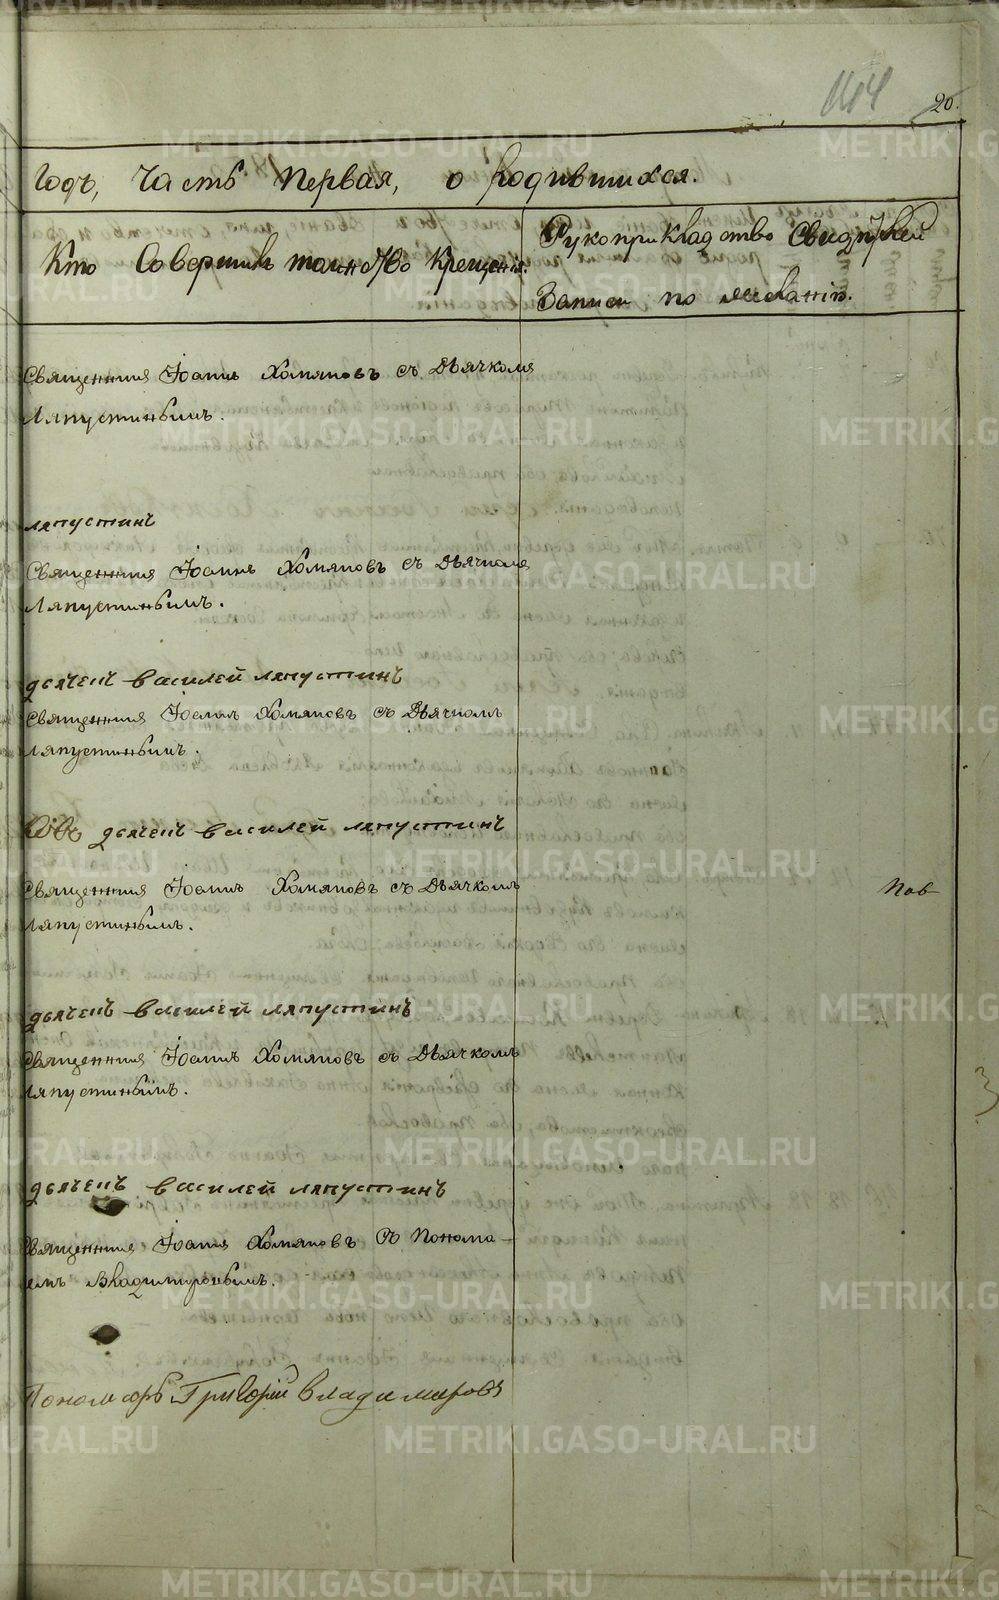 20.
Годъ, Часть Первая, о Родившихся.
Кто Совершилъ таинство Крещенія.
Рукоприкладство Свидѣтелей
Записи по желанію.
Священник Іоаннъ Хомяковъ съ Дьячкомъ
Ляпустинымъ.
Ляпустинъ
Священник Іоаннъ Хомяковъ съ Дьячкомъ
Ляпустинымъ.
дьячекъ василей ляпустинъ
Священник Іоаннъ Хомяковъ съ Дьячкомъ
Ляпустинымъ.
дьячекъ василей ляпустинъ
Священник Іоаннъ Хомяковъ съ Дьячкомъ
Ляпустинымъ.
Пов
дьячекъ василей ляпустинъ
Священник Іоаннъ Хомяковъ съ Дьячкомъ
Ляпустинымъ.
дьячекъ василей ляпустинъ
Священник Іоаннъ Хомяковъ съ Понома-
ремъ Владимировымъ.
Пономарь Григорій Владимировъ
METRIKI.GASO-URAL.RU